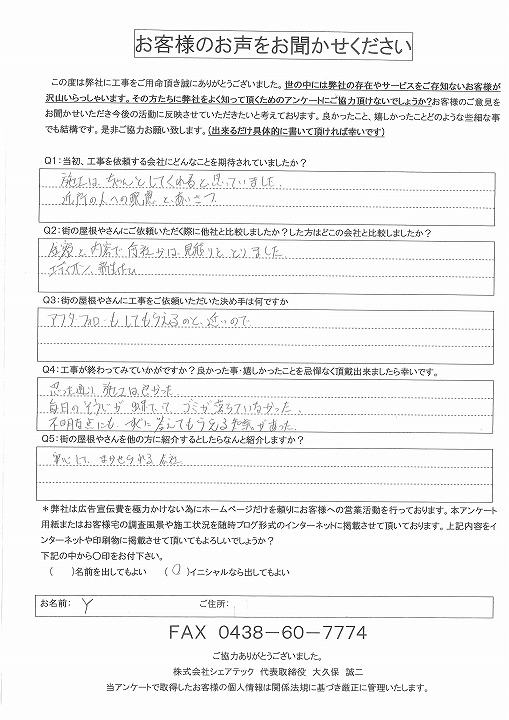 お客様のお声をお聞かせください
この度は弊社に工事をご用命頂き誠にありがとうございました。世の中には弊社の存在やサービスをご存知ないお客様が
沢山いらっしゃいます。その方たちに弊社をよく知って頂くためのアンケートにご協力頂けないでしょうか?お客様のご意見を
お聞かせいただき今後の活動に反映させていただきたいと考えております。良かったこと、嬉しかったことどのような些細な事
でも結構です。是非ご協力お願い致します。(出来るだけ具体的に書いて頂ければ幸いです)
Q1:当初、工事を依頼する会社にどんなことを期待されていましたか?
施工は、ちゃんとしてくれると思っていました。
近所の人への配慮とあいさつ
Q2:街の屋根やさんにご依頼いただく際に他社と比較しましたか?した方はどこの会社と比較しましたか?
金額と内容で 各社からは、見積りをとりました。
エディオン、
Q3:街の屋根やさんに工事をご依頼いただいた決め手は何ですか
アフターフォローもしてもらえるのと、近いので
Q4:工事が終わってみていかがですか?良かった事・嬉しかったことを忌憚なく頂戴出来ましたら幸いです。
思った通り 施工は良かった
毎日のそうじが 出来ていて ゴミが落ちていなかった。
不明な点にも すぐに答えてもらえる があった。
Q5:街の屋根やさんを他の方に紹介するとしたらなんと紹介しますか?
安心して、まかせられる会社
*弊社は広告宣伝費を極力かけない為にホームページだけを頼りにお客様への営業活動を行っております。本アンケート
用紙またはお客様宅の調査風景や施工状況を随時ブログ形式のインターネットに掲載させて頂いております。上記内容をイ
ンターネットや印刷物に掲載させて頂いてもよろしいでしょうか?
下記の中から〇印をお付下さい。
( )名前を出してもよい (○)イニシャルなら出してもよい
お名前: Y ご住所:
FAX 0438-60-7774
ご協力ありがとうございました。
株式会社シェアテック 代表取締役 大久保 誠二
当アンケートで取得したお客様の個人情報は関係法規に基づき厳正に管理いたします。